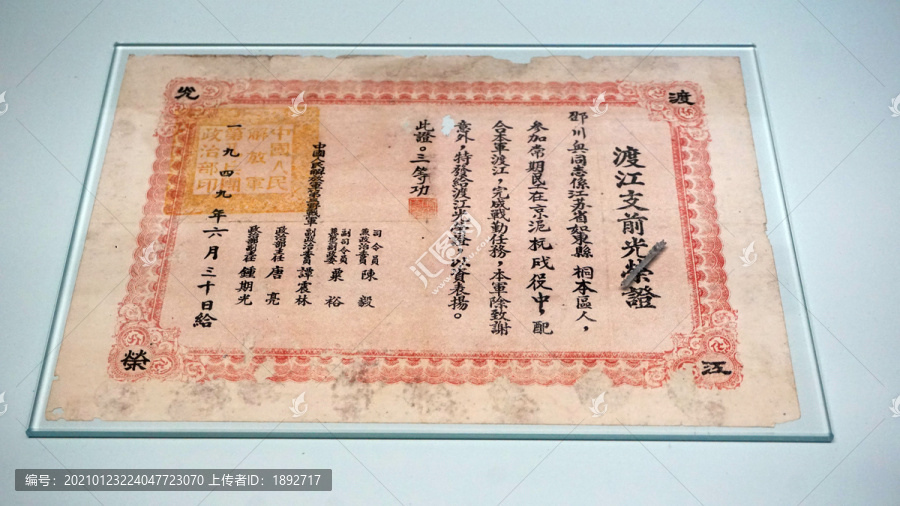 渡江
光榮
渡江支前光榮證
邵川與同志係江苏省如東縣桐本區人，
参加常期民在京沪杭戍役中，配
合本軍渡江，完成戰勤任務，本軍除致謝
意外，特發給渡江光榮證，以資表揚。
此證。三等功
中國人民解放軍第三野戰軍
司令員
兼政治委員 陳毅
副司令員
兼第二副政委 粟裕
副政治委員 譚震林
政治部主任 唐亮
政治部副主任 鍾期光
一九四九年六月三十日給
中國人民
解放軍
政治部印
汇图网
编号：20210123224047723070 上传者ID：1892717